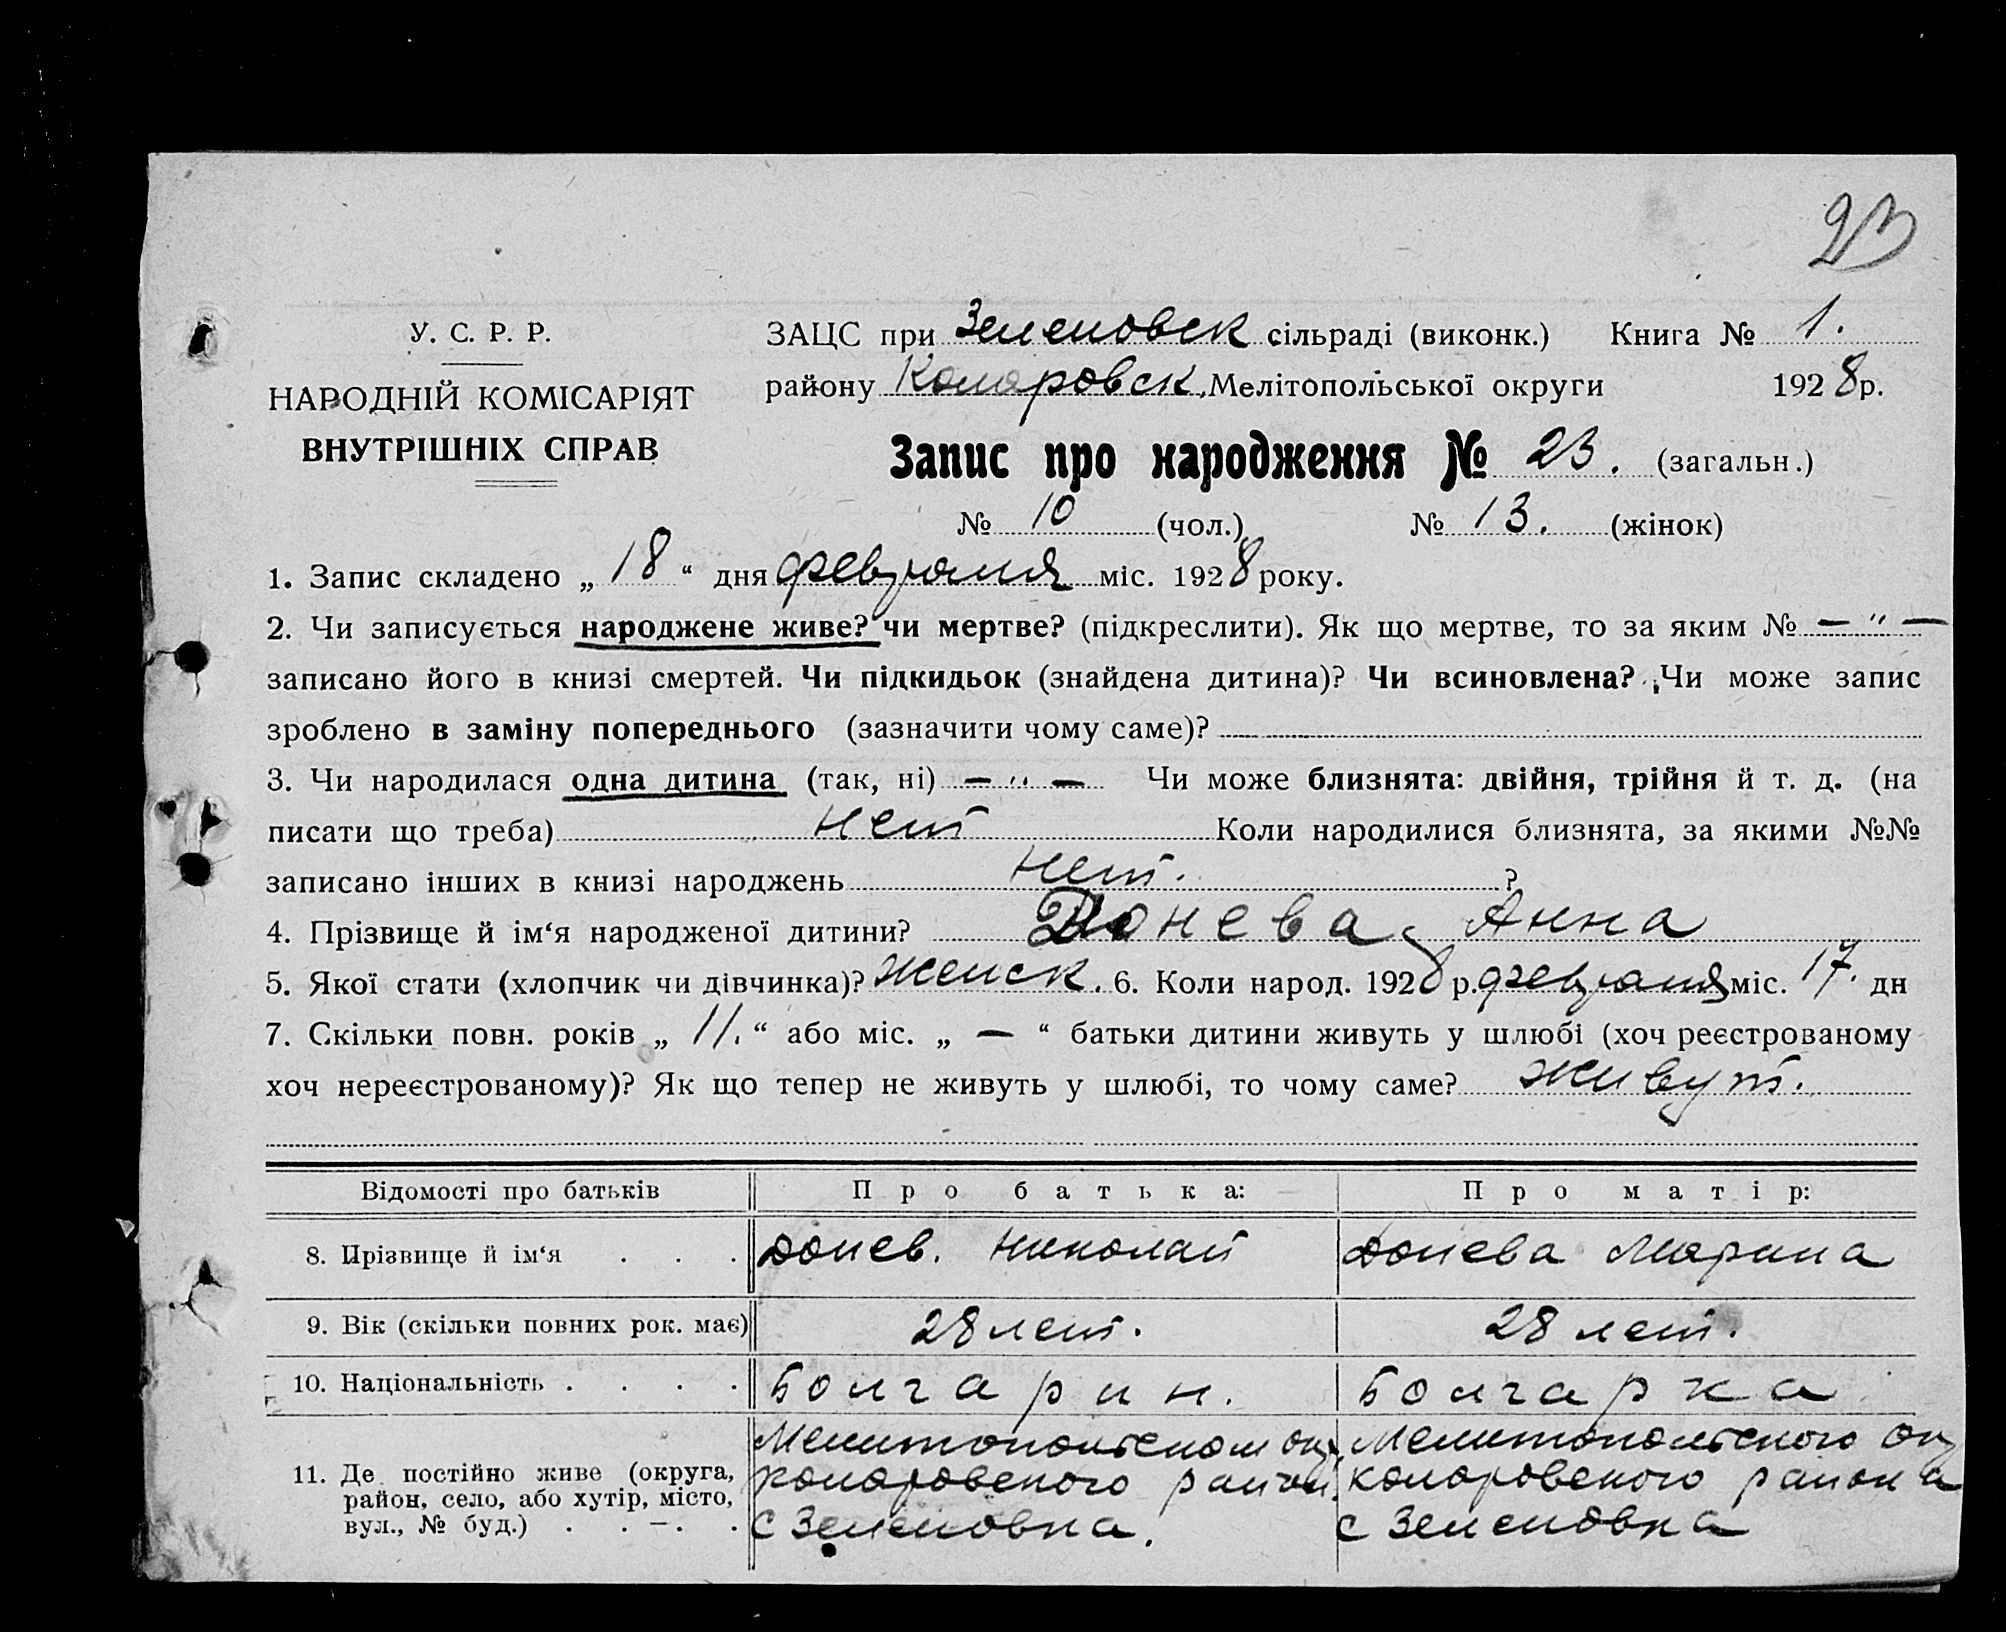 23
У. С. Р. Р.
НАРОДНІЙ КОМІСАРІЯТ
ВНУТРІШНІХ СПРАВ
ЗАЦС при Зеленовск сільраді (виконк.) Книга № 1.
району Коларовск. Мелітопольської округи 1928 р.
Запис про народження № 23. (загальн.)
№ 10 (чол.) № 13. (жінок)
1. Запис складено „ 18 “ дня февраля міс. 1928 року.
2. Чи записується народжене живе? чи мертве? (підкреслити). Як що мертве, то за яким № — " —
записано його в книзі смертей. Чи підкидьок (знайдена дитина)? Чи всиновлена? Чи може запис
зроблено в заміну попереднього (зазначити чому саме)?
3. Чи народилася одна дитина (так, ні) — " — Чи може близнята: двійня, трійня й т. д. (на
писати що треба) нет Коли народилися близнята, за якими №№
записано інших в книзі народжень нет. ?
4. Прізвище й ім‘я народженої дитини? Донева Анна
5. Якої стати (хлопчик чи дівчинка)? женск. 6. Коли народ. 1928 р. февраля міс. 17. дн
7. Скільки повн. років „ 11. “ або міс. „ — “ батьки дитини живуть у шлюбі (хоч реєстрованому
хоч нереєстрованому)? Як що тепер не живуть у шлюбі, то чому саме? живут.
Відомості про батьків Про батька: Про матір:
8. Прізвище й ім‘я . . . Донев. Николай Донева Марина
9. Вік (скільки повних рок. має) 28 лет. 28 лет.
10. Національність . . . . Болгарин. Болгарка
11. Де постійно живе (округа, район, село, або хутір, місто, вул., № буд.) . . — . .
Мелитопольском окр
Коларовского район.
с Зеленовка.
Мелитопольского окр
Коларовского района
с Зеленовка